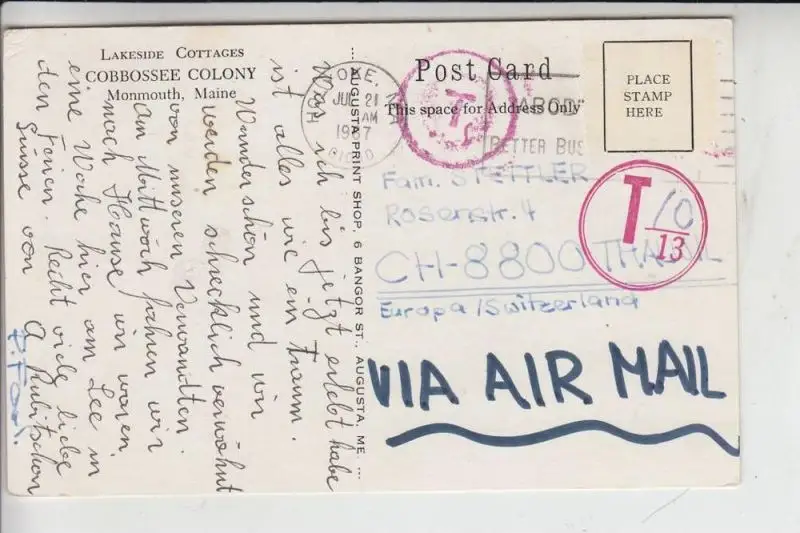 LAKESIDE COTTAGES
COBBOSSEE COLONY
Monmouth, Maine
Was ich bis jetzt erlebt habe
ist alles wie ein Traum.
Wunderschön und wir
werden schrecklich verwöhnt
von unseren Verwandten.
Am Mittwoch fahren wir
nach Hause wir waren
eine Woche hier am See in
den Ferien. Recht viele liebe
Grüsse von
... AUGUSTA PRINT SHOP, 6 BANGOR ST., AUGUSTA, ME. ...
Post Card
This space for Address Only
PLACE
STAMP
HERE
JUL 21
AM
1987
OHIO
T
Fam. STETTLER
Rosenstr. 4
CH-8800 THALWIL
Europa/Switzerland
T/10
13
VIA AIR MAIL